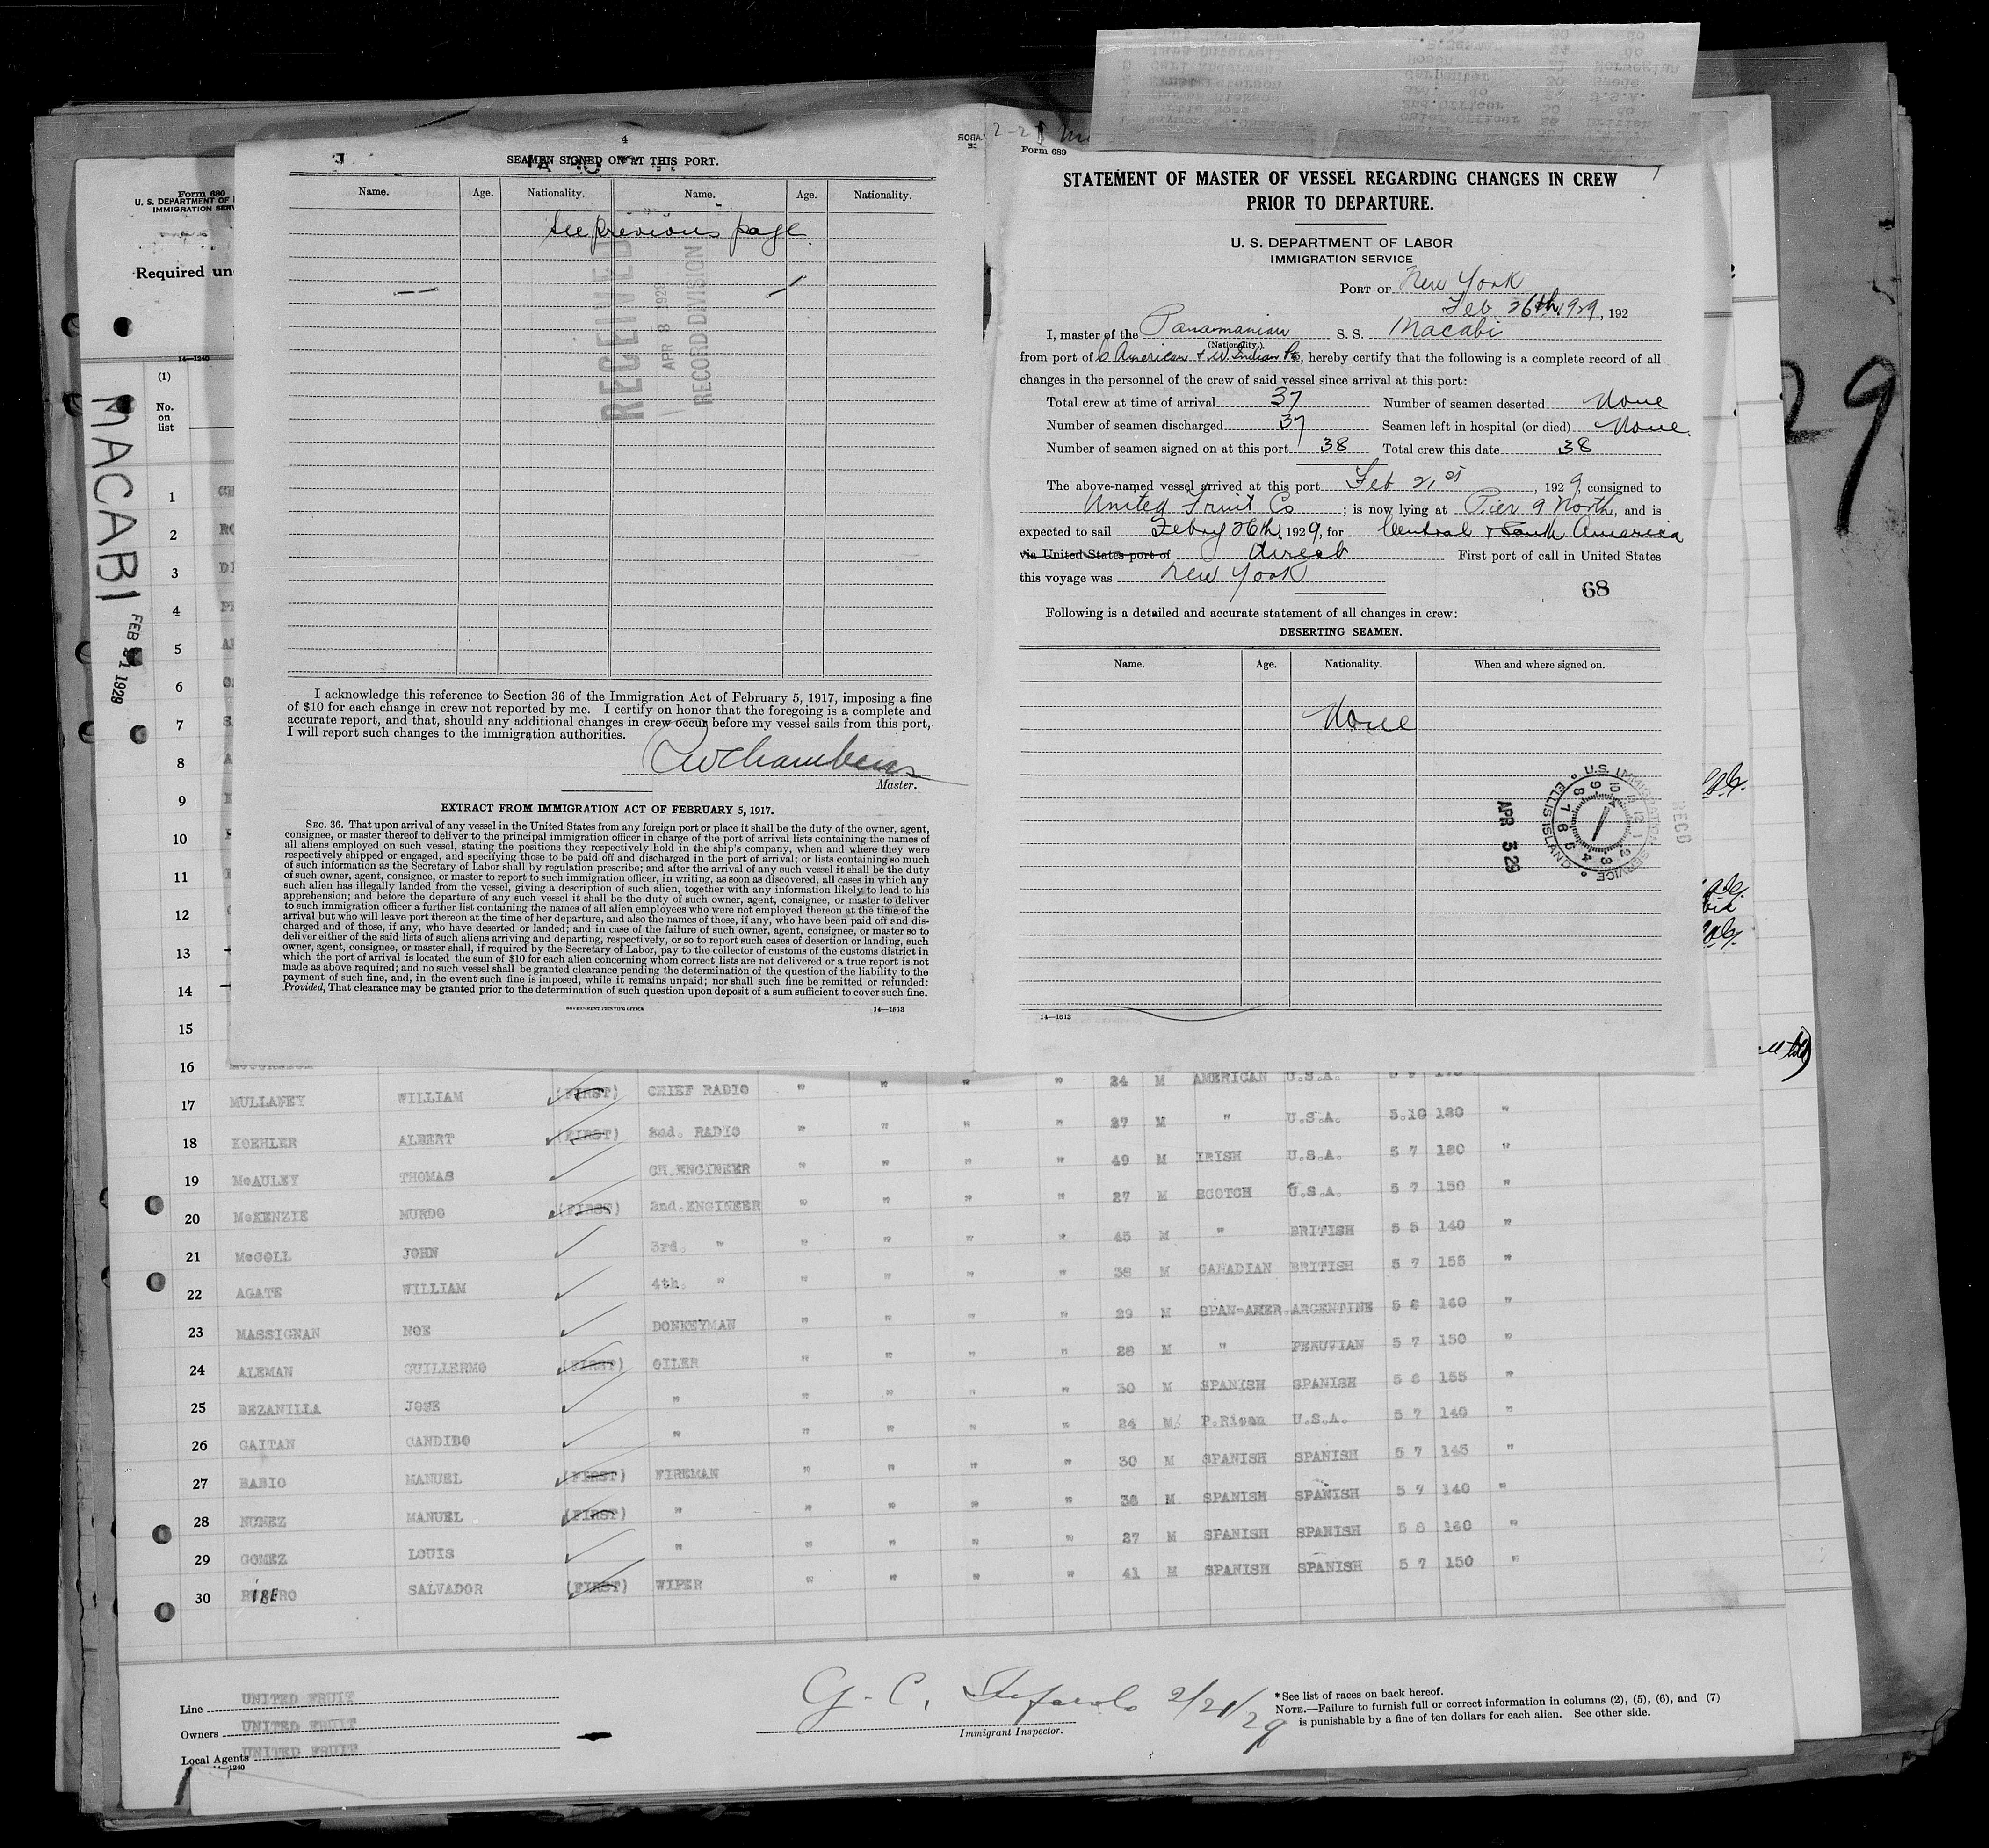 4
SEAMEN SIGNED ON AT THIS PORT.
Name. Age. Nationality. Name. Age. Nationality.
See previous page
RECEIVED
APR 3 1929
RECORD DIVISION
I acknowledge this reference to Section 36 of the Immigration Act of February 5, 1917, imposing a fine
of $10 for each change in crew not reported by me. I certify on honor that the foregoing is a complete and
accurate report, and that, should any additional changes in crew occur before my vessel sails from this port,
I will report such changes to the immigration authorities.
Chambers
Master.
EXTRACT FROM IMMIGRATION ACT OF FEBRUARY 5, 1917.
SEC. 36. That upon arrival of any vessel in the United States from any foreign port or place it shall be the duty of the owner, agent,
consignee, or master thereof to deliver to the principal immigration officer in charge of the port of arrival lists containing the names of
all aliens employed on such vessel, stating the positions they respectively hold in the ship's company, when and where they were
respectively shipped or engaged, and specifying those to be paid off and discharged in the port of arrival; or lists containing so much
of such information as the Secretary of Labor shall by regulation prescribe; and after the arrival of any such vessel it shall be the duty
of such owner, agent, consignee, or master to report to such immigration officer, in writing, as soon as discovered, all cases in which any
such alien has illegally landed from the vessel, giving a description of such alien, together with any information likely to lead to his
apprehension; and before the departure of any such vessel it shall be the duty of such owner, agent, consignee, or master to deliver
to such immigration officer a further list containing the names of all alien employees who were not employed thereon at the time of the
arrival but who will leave port thereon at the time of her departure, and also the names of those, if any, who have been paid off and dis-
charged and of those, if any, who have deserted or landed; and in case of the failure of such owner, agent, consignee, or master so to
deliver either of the said lists of such aliens arriving and departing, respectively, or so to report such cases of desertion or landing, such
owner, agent, consignee, or master shall, if required by the Secretary of Labor, pay to the collector of customs of the customs district in
which the port of arrival is located the sum of $10 for each alien concerning whom correct lists are not delivered or a true report is not
made as above required; and no such vessel shall be granted clearance pending the determination of the question of the liability to the
payment of such fine, and, in the event such fine is imposed, while it remains unpaid; nor shall such fine be remitted or refunded:
Provided, That clearance may be granted prior to the determination of such question upon deposit of a sum sufficient to cover such fine.
GOVERNMENT PRINTING OFFICE 14—1613
Form 689
STATEMENT OF MASTER OF VESSEL REGARDING CHANGES IN CREW
PRIOR TO DEPARTURE.
U. S. DEPARTMENT OF LABOR
IMMIGRATION SERVICE
PORT OF New York
Feb 26th 1929, 192
I, master of the Panamanian S. S. Macabi
(Nationality.)
from port of C American & W Indian Pts, hereby certify that the following is a complete record of all
changes in the personnel of the crew of said vessel since arrival at this port:
Total crew at time of arrival 37 Number of seamen deserted None
Number of seamen discharged 37 Seamen left in hospital (or died) None.
Number of seamen signed on at this port 38 Total crew this date 38
The above-named vessel arrived at this port Feb 21st, 1929, consigned to
United Fruit Co; is now lying at Pier 9 North, and is
expected to sail Febry 26th, 1929, for Central & South America
via United States port of direct First port of call in United States
this voyage was New York
68
Following is a detailed and accurate statement of all changes in crew:
DESERTING SEAMEN.
Name. Age. Nationality. When and where signed on.
None
APR 3 29
U.S. IMMIGRATION SERVICE
ELLIS ISLAND
RECD
14—1613
29
Form 680
U. S. DEPARTMENT OF
IMMIGRATION SERV
Required un
14—1240
(1)
No.
on
list
MACABI
FEB 21 1929
1
2
3
4
5
6
7
8
9
10
11
12
13
14
15
16
17 MULLANEY WILLIAM (FIRST) CHIEF RADIO " " " " 24 M AMERICAN U.S.A.
18 KOEHLER ALBERT (FIRST) 2nd. RADIO " " " 27 M " U.S.A. 5.10 180 "
19 McAULEY THOMAS CH.ENGINEER " " " " 49 M IRISH U.S.A. 5 7 180 "
20 McKENZIE MURDO (FIRST) 2nd.ENGINEER " " " " 27 M SCOTCH U.S.A. 5 7 150 "
21 McCOLL JOHN 3rd. " " " " " 45 M " BRITISH 5 5 140 "
22 AGATE WILLIAM 4th. " " " " " 38 M CANADIAN BRITISH 5 7 155 "
23 MASSIGNAN NOE DONKEYMAN " " " " 29 M SPAN-AMER. ARGENTINE 5 8 160 "
24 ALEMAN GUILLERMO (FIRST) OILER " " " " 28 M " PERUVIAN 5 7 150 "
25 BEZANILLA JOSE " " " " " 30 M SPANISH SPANISH 5 8 155 "
26 GAITAN CANDIDO " " " " " 24 M P.Rican U.S.A. 5 7 140 "
27 BABIO MANUEL (FIRST) FIREMAN " " " " 30 M SPANISH SPANISH 5 7 145 "
28 NUNEZ MANUEL (FIRST) " " " " " 38 M SPANISH SPANISH 5 7 140 "
29 GOMEZ LOUIS " " " " " 27 M SPANISH SPANISH 5 8 160 "
30 RIBERO SALVADOR (FIRST) WIPER " " " " 41 M SPANISH SPANISH 5 7 150 "
Line UNITED FRUIT
Owners UNITED FRUIT
Local Agents UNITED FRUIT
14—1240
G. C. 2/21/29
Immigrant Inspector.
*See list of races on back hereof.
NOTE.—Failure to furnish full or correct information in columns (2), (5), (6), and (7)
is punishable by a fine of ten dollars for each alien. See other side.